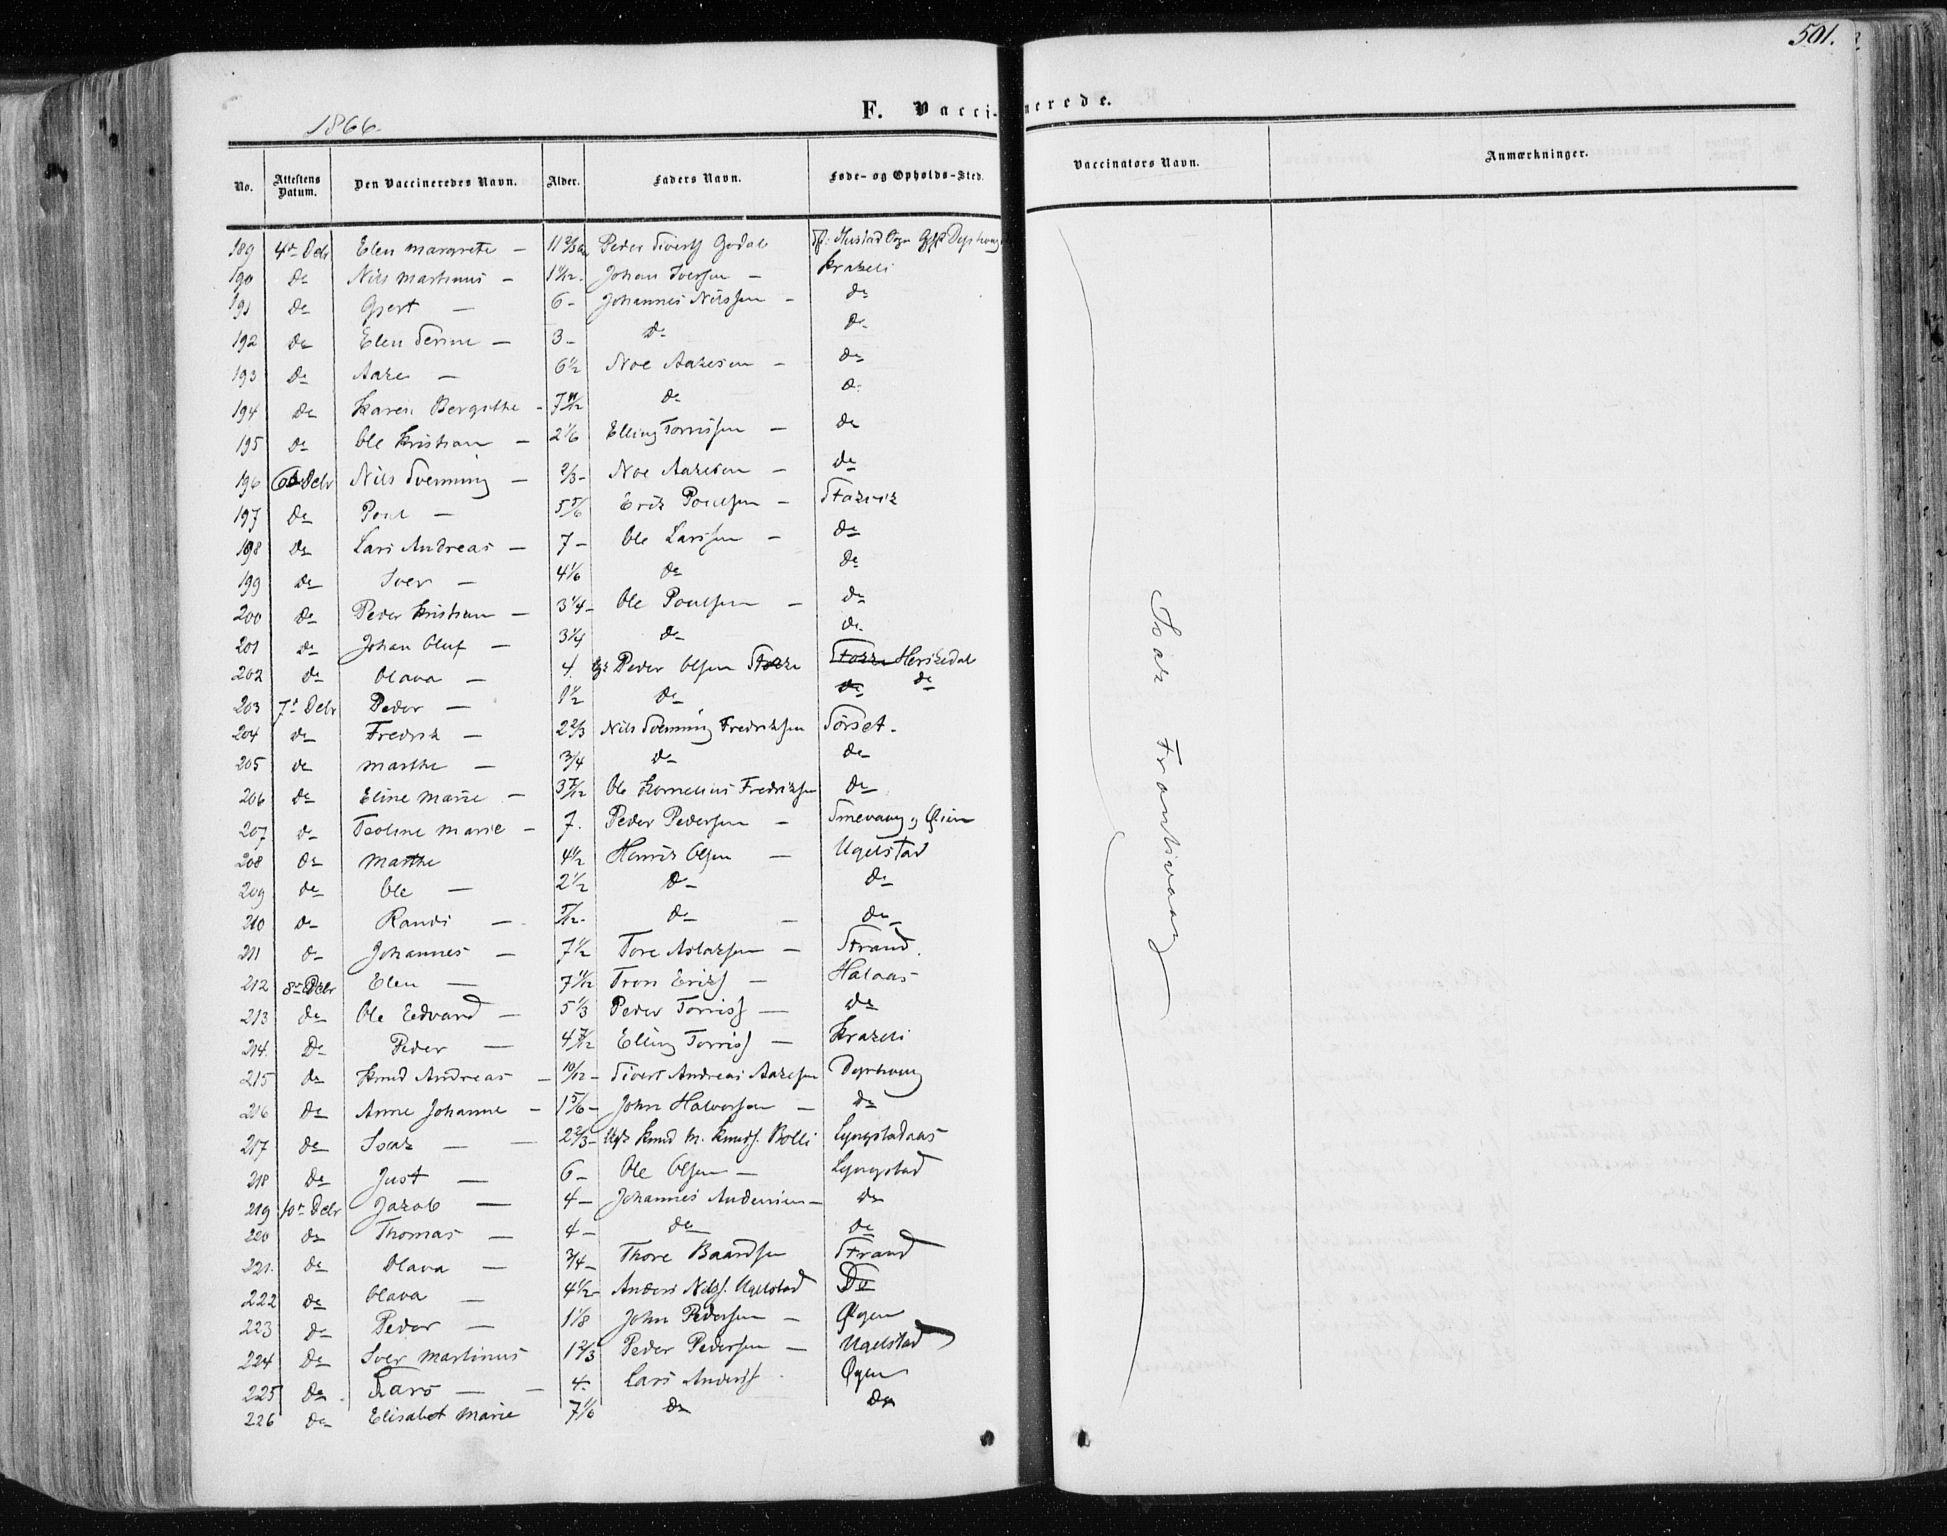 501.
1866.
F. Vaccinerede.
No. Attestens Datum. Den Vaccineredes Navn. Alder. Faders Navn. Føde- og Opholds-Sted. Vaccinators Navn. Anmærkninger.
189 4de Debr Elen Margrete — 11 2/3 Peder Sivertss Godal
190 Do Nils Martinus — 1 1/12 Johan Iversen — Krakeli
191 Do Gjert — 6 — Johannes Nilssen — Do
192 Do Elen Serine — 3 — Do Do
193 Do Aake — 6 1/2 Noe Aakesen — Do
194 Do Karen Bergithe — 7 11/12 Do Do
195 Do Ole Kristian — 2 1/6 Elling Torrissen — Do
196 6te Debr Nils Svenning — 2/3 — Noe Aakesen — Do
197 Do Poul — 5 5/6 Erik Poulsen — Stokvik
198 Do Lars Andreas — 7 — Ole Larssen — Do
199 Do Iver — 4 1/6 Do Do
200 Do Peder Kristian — 3 1/4 — Ole Poulsen — Do
201 Do Johan Oluf — 3 1/4 Do Do
202 Do Olava — 4. Peder Olsen Stokke Stokke Herskedal
203 7de Debr Peder — 1 1/2 Do Do Do
204 Do Fredrik — 2 2/3 Nils Svenning Fredriksen Sørset.
205 Do Marthe — 3/4 Do Do
206 Do Eline Marie — 3 7/12 Ole Kornelius Fredriksen Do
207 Do Teoline Marie — 7. Peder Pedersen — Smevaag, Øien
208 Do Marthe 4 1/2 Henrik Olsen — Ugelstad
209 Do Ole — 2 1/2 Do Do
210 Do Randi — 5/12. Do — Do
211 Do Johannes — 7 1/2 Tore Aslaksen — Strand.
212 8de Debr Elen — 7 11/12 Tron Eriks — Halaas
213 Do Ole Edvard — 5 1/3 Peder Torriss — Do
214. Do Peder — 4 7/12 Elling Torriss — Krakeli
215 Do Knud Andreas — 10/12 — Sivert Andreas Aakesen Dyrhaug
216 Do Anne Johanne — 1 5/6 — John Halvorsen — Do
217 Do Isak — 2 2/3 — Knud M. Knuds. Bolli Lyngstadaas
218 Do Just — 6 — Ole Olsen — Lyngstad
219 10de Debr Jakob — 4 — Johannes Andersen — Do
220 Do Thomas — 4 — Do Do
221. Do Olava — 3/4 — Thore Baardsen Strand
222 Do Olava — 4 1/2 Anders Nilss. Ugelstad Do
223 Do Peder — 1 1/8 John Pedersen — Øyen
224 Do Iver Martinus 1 2/3 Peder Pedersen — Ugelstad
225 Do Lars — 4 — Lars Anderss Øyen
226 Do Elisabet Marie 7 1/6 Do Do
Isak Trontivaag